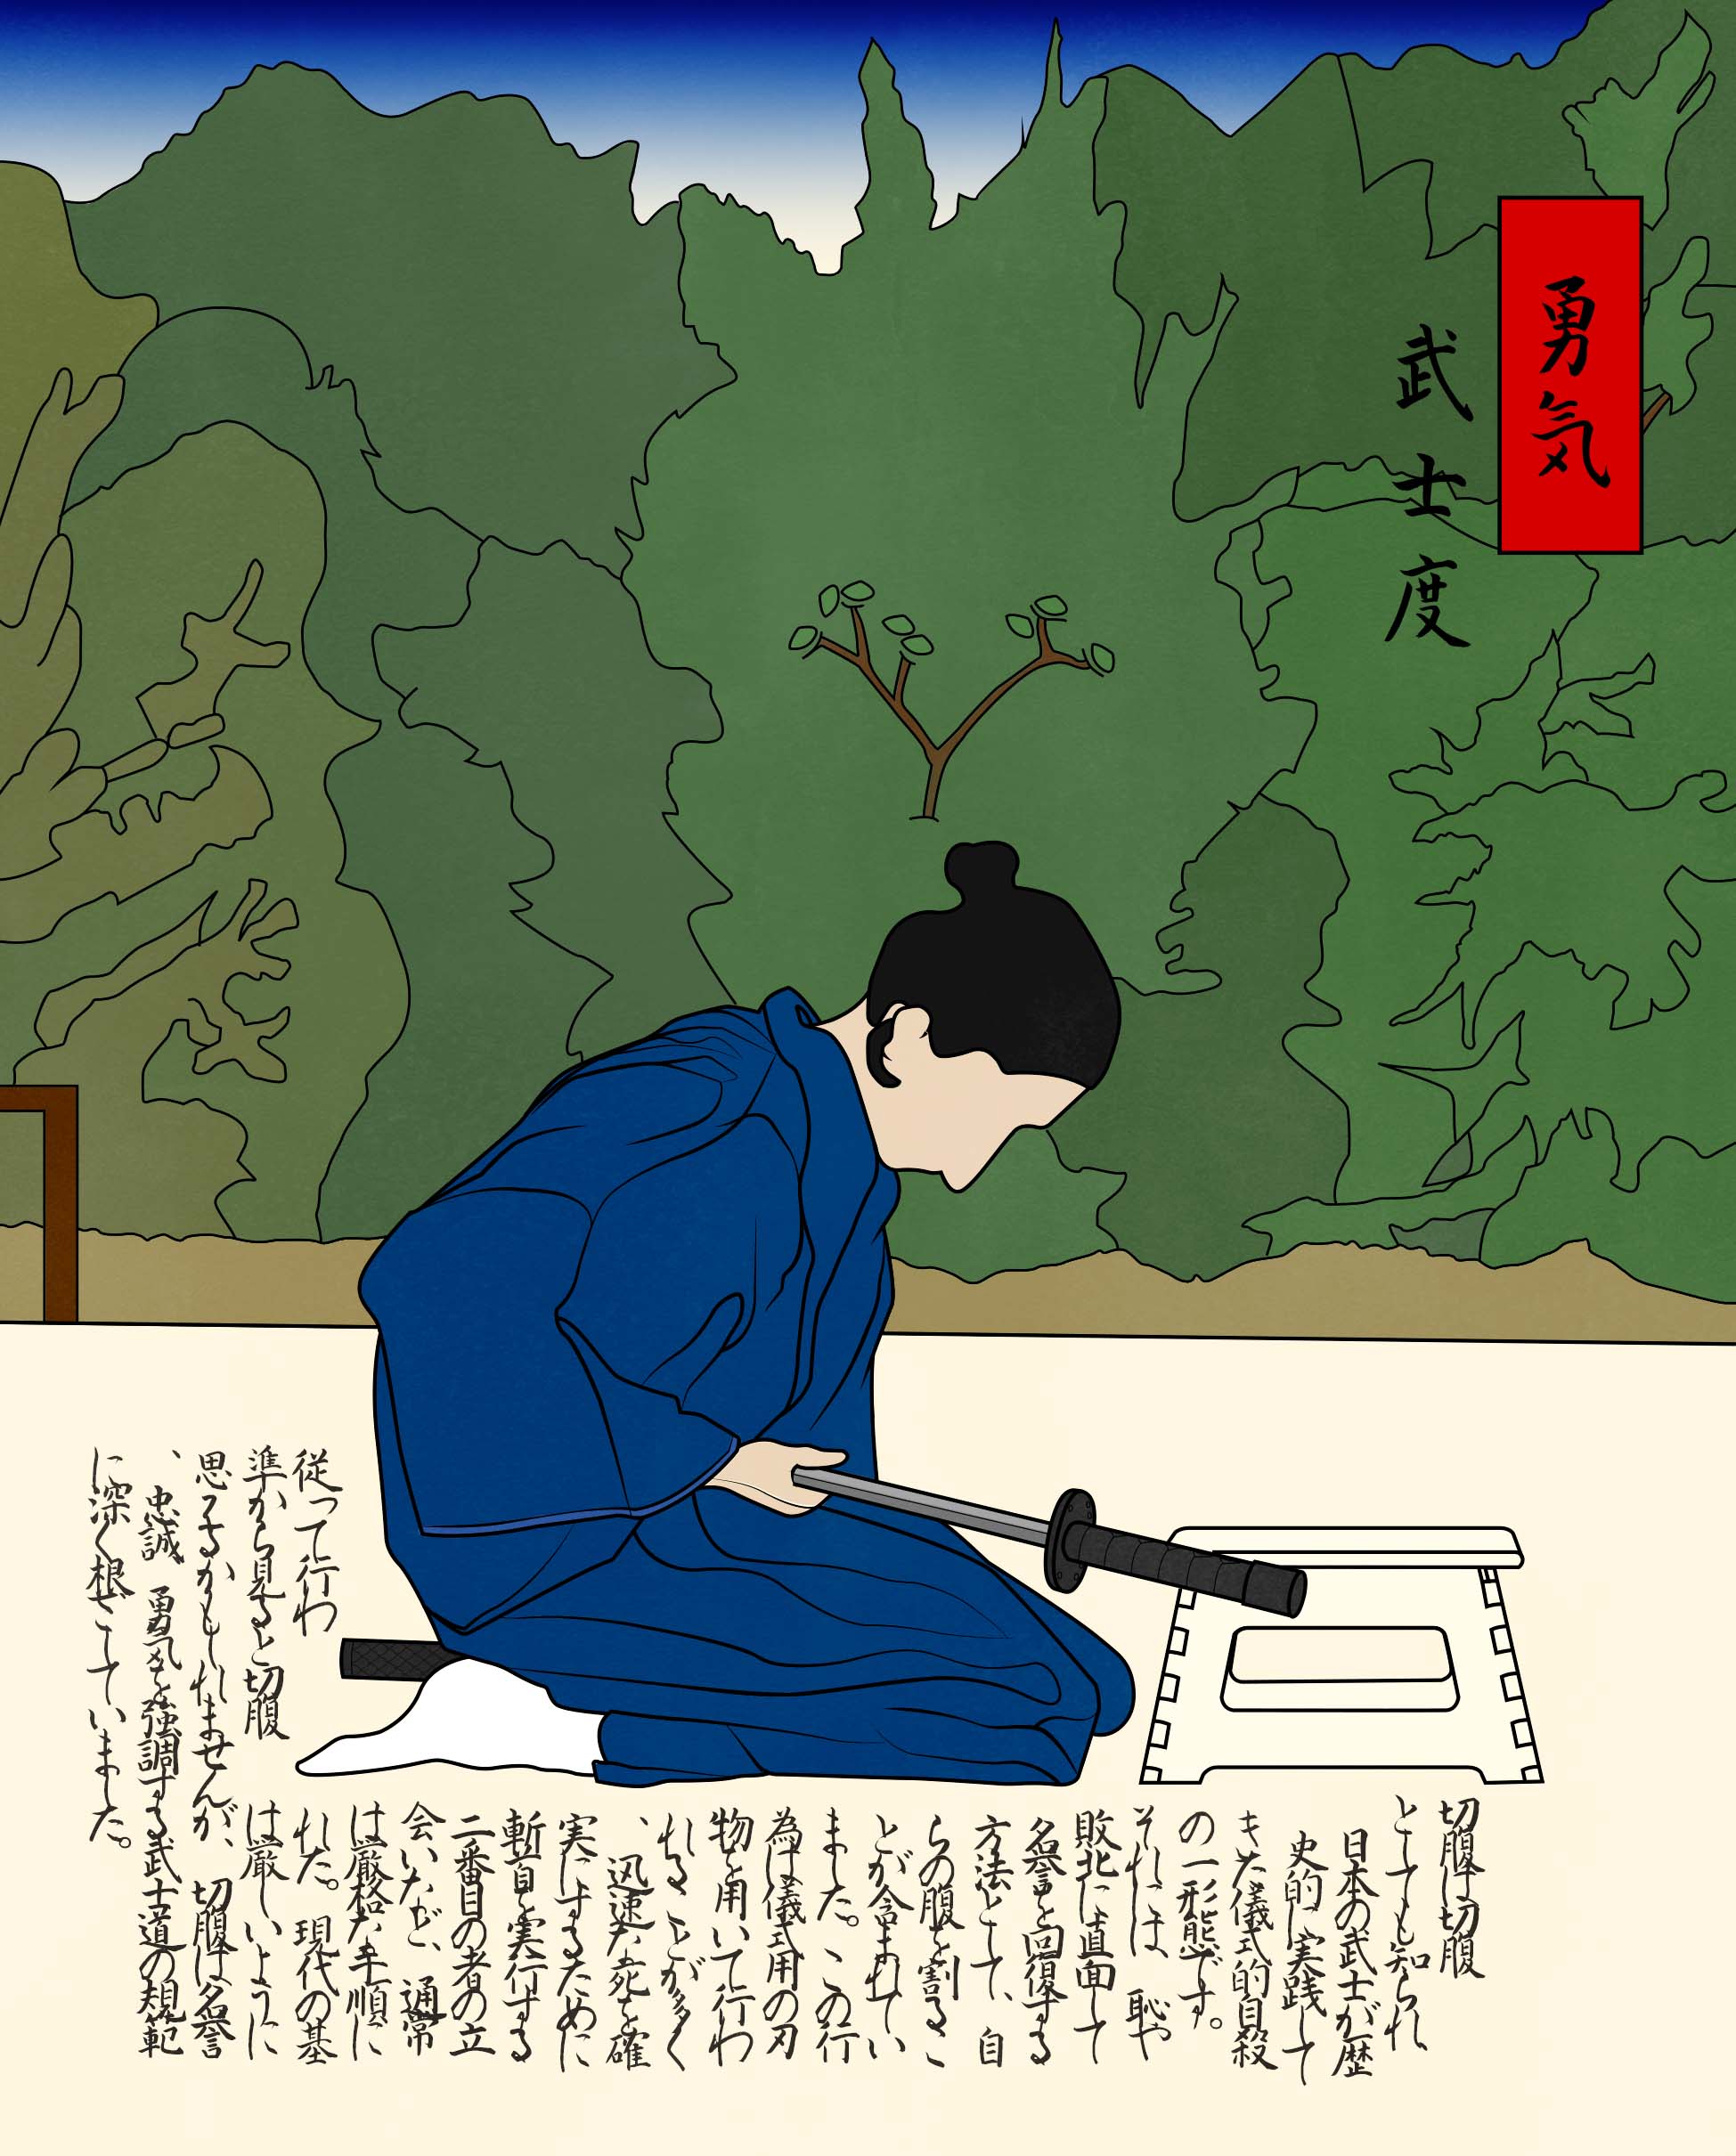 勇気
武士度
切腹は切腹
とても知られ
日本の武士が歴
史的に実践して
きた儀式的自殺
の一形態です。
それには、恥や
敗北に直面して
名誉を回復する
方法として、自
らの腹を割るこ
とが含まれてい
ました。この行
為は儀式用の刃
物を用いて行わ
れることが多く
、迅速な死を確
実にするために
斬首を実行する
二番目の者の立
会いなど、通常
は厳格な手順に
従って行わ
れた。現代の基
準から見ると切腹
は厳しいように
思えるかもしれませんが、切腹は名誉
、忠誠 勇気を強調する武士道の規範
に深く根ざしていました。